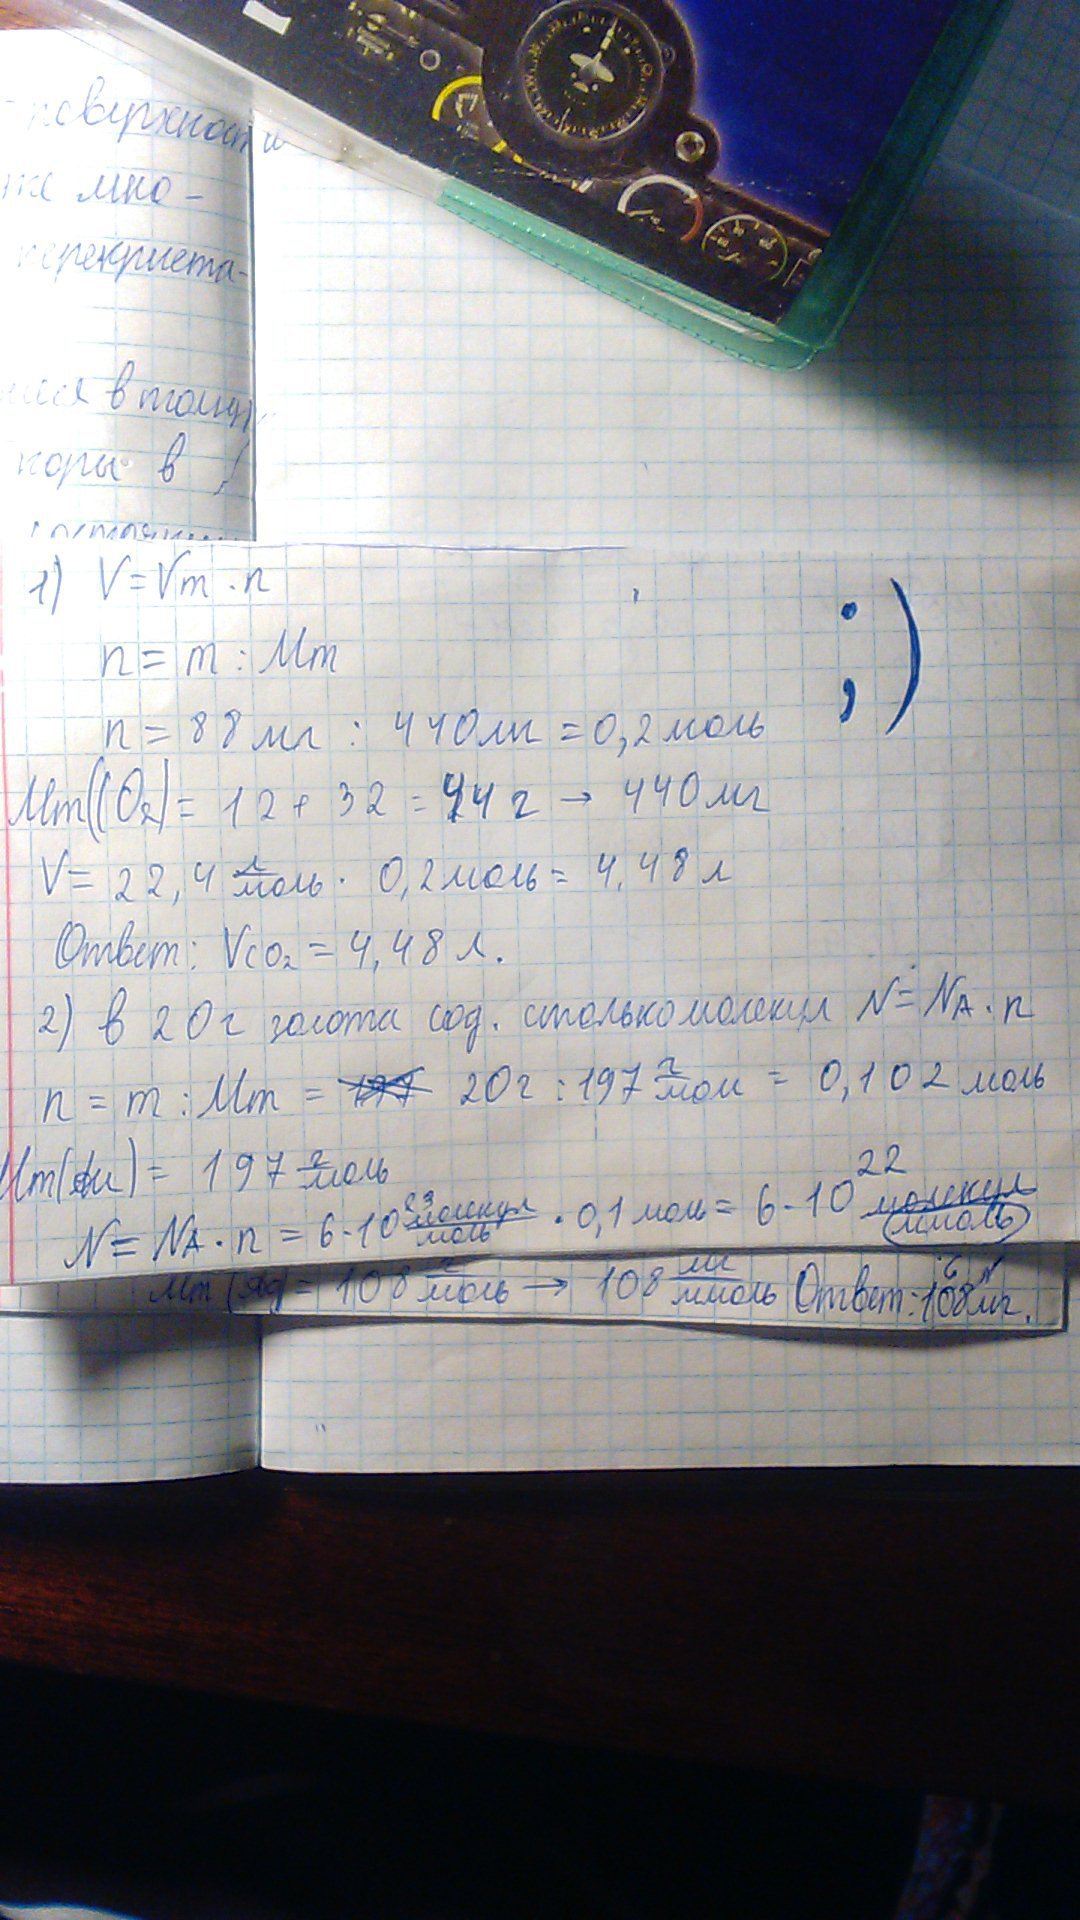 поверхност
же мно-
перекриста-
в толщу
поры в
1) V=Vm·n
n=m:Mm
;)
n=88мг:440мг=0,2моль
Mm(CO₂)=12+32=44г→440мг
V=22,4 л/моль·0,2моль=4,48л
Ответ: Vco₂=4,48л.
2) в 20г золота сод. столько молекул N=NA·n
n=m:Mm= 20г:197 г/мол = 0,102моль
Mm(Au)=197 г/моль
N=NA·n=6·10²³ молекул/моль·0,1моль=6·10²² молекул/ммоль
Mm(Ag)=108 г/моль→108 мг/ммоль Ответ:108мг.